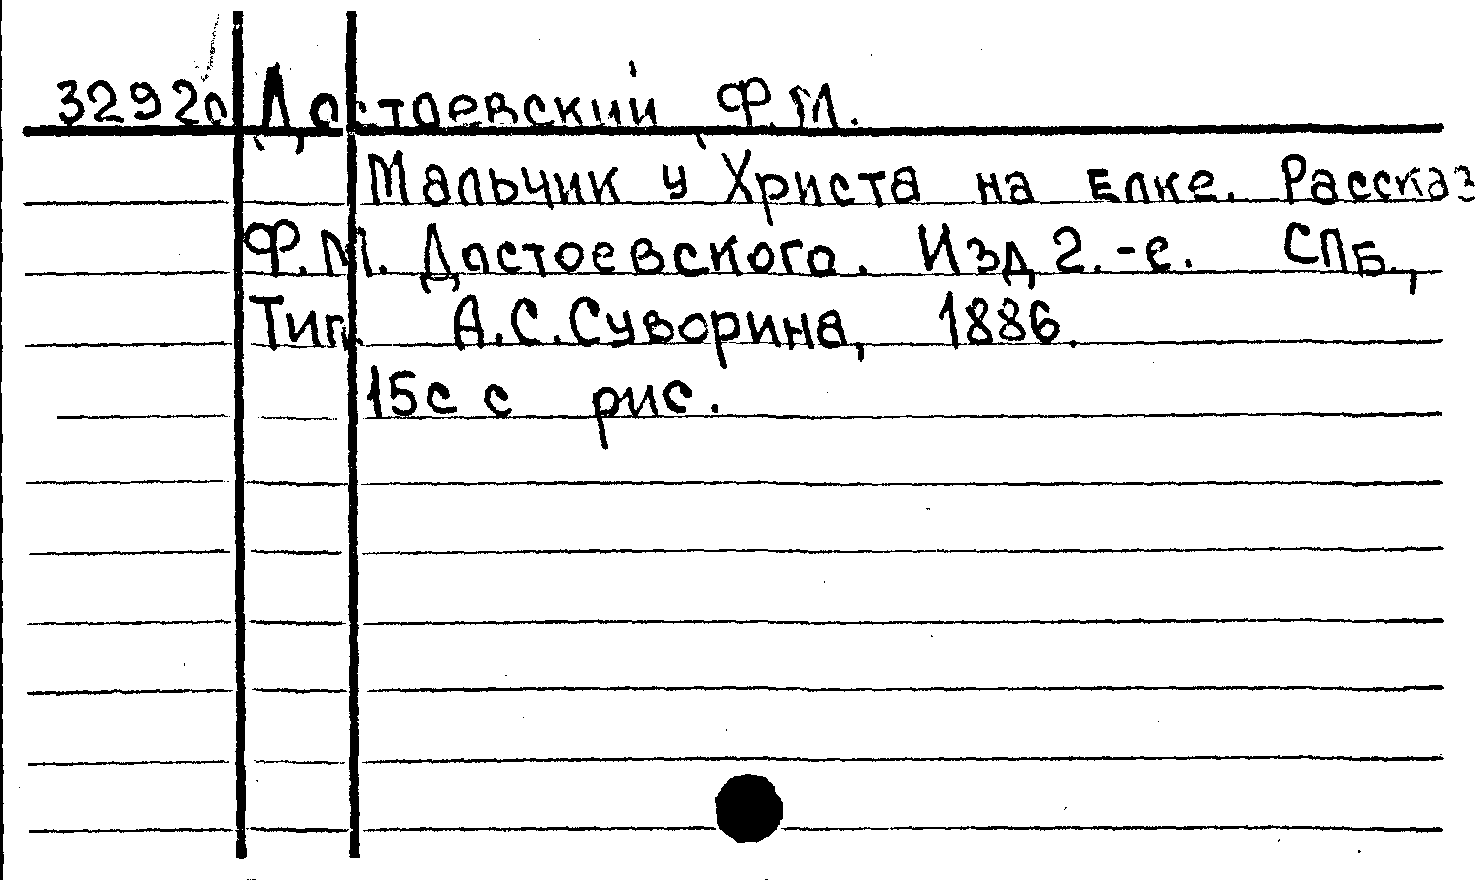 32920 Достоевский, Ф.М.
Мальчик у Христа на елке. Рассказ
Ф.М. Достоевского. Изд 2.-е. СПб.,
Тип. А.С.Суворина, 1886.
15с с рис.